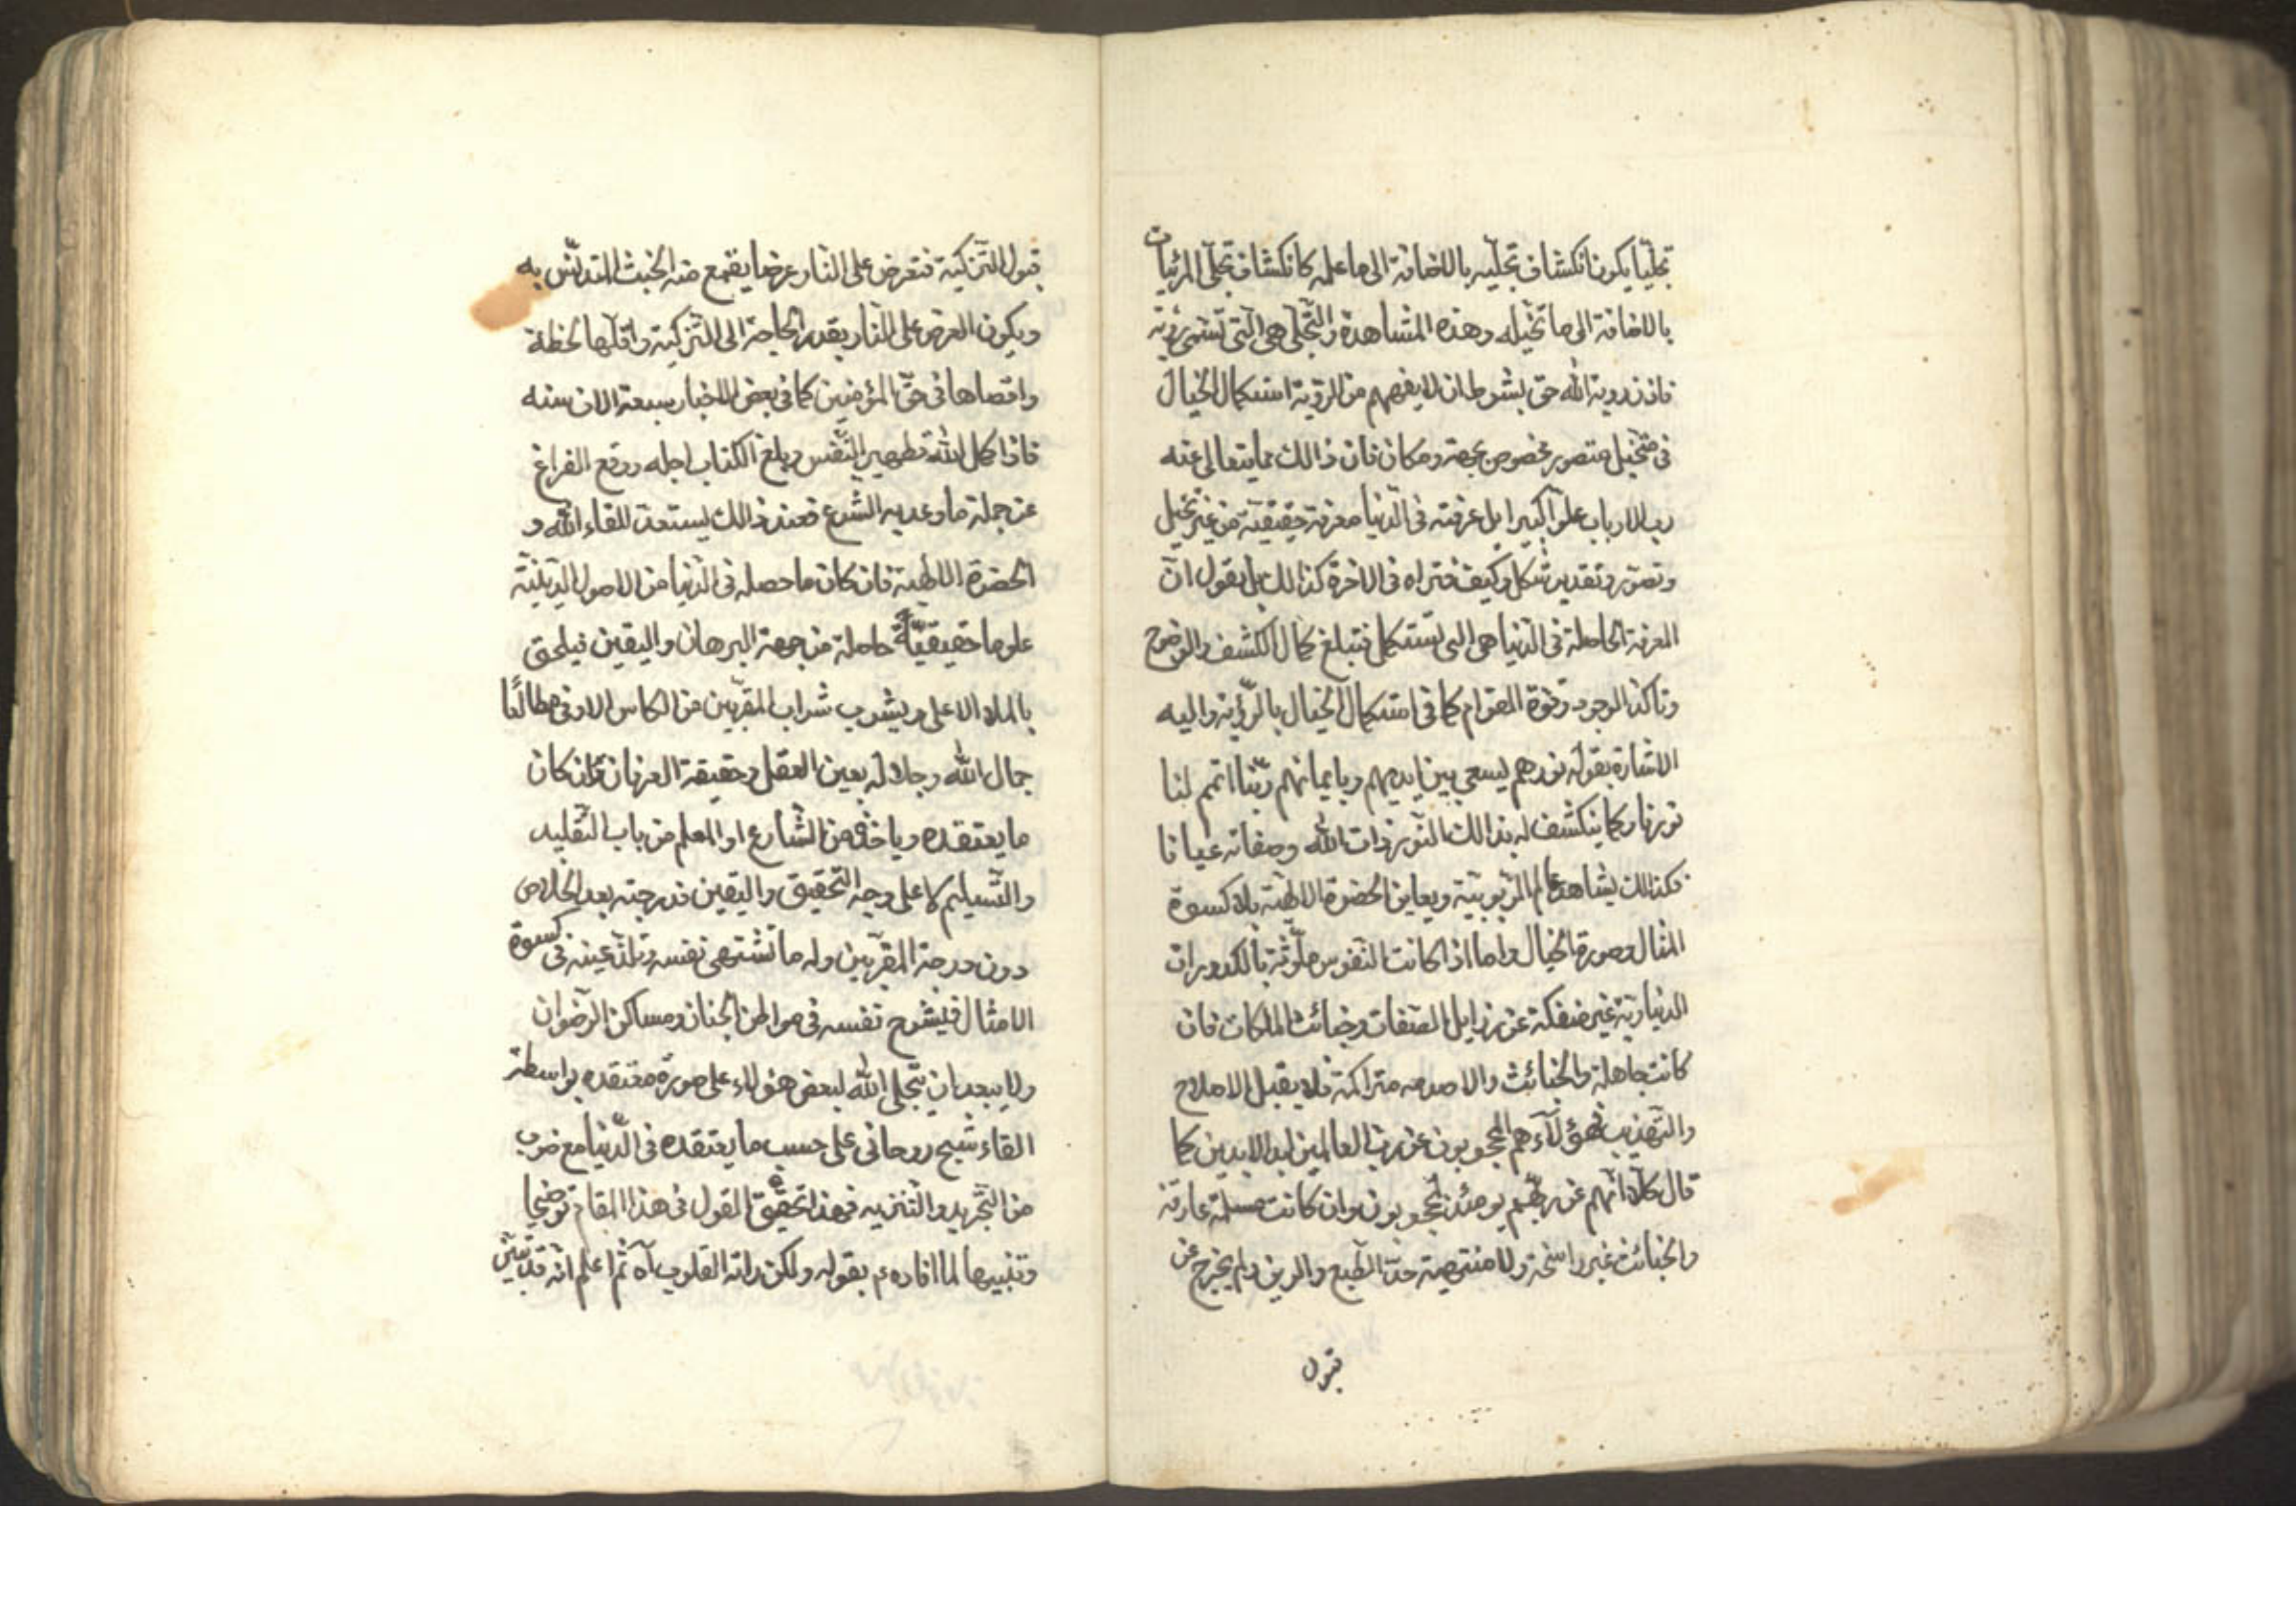 تجلّيا يكون انكشاف تجلّيه بالاضافة الى ما علمه كانكشاف تجلّى المرئيات
بالاضافة الى ما تخيله وهذه المشاهدة والتّجلّى هى الّتى تسمّى رؤية
فاذن رؤية الله حق بشرط ان لا يفهم من الرؤية استكمال الخيال
فى متخيل متصور مخصوص بجهة ومكان فان ذالك مما يتعالى عنه
رب الارباب علوّا كبيرا بل عرفته فى الدّنيا معرفة حقيقيّة من غير تخيل
وتصوّر وتقدير شكل وكيف فتراه فى الاخرة كذالك بل يقول انّ
المعرفة الحاصلة فى الدّنيا هى التى تستكمل فتبلغ كمال الكشف والوضوح
وتاكّد الوجود وقوة القوام كما فى استكمال الخيال بالرّؤية واليه
الاشارة بقوله نورهم يسعى بين ايديهم وبايمانهم ربّنا اتمم لنا
نورنا وكما ينكشف له بذالك النّور ذات الله وصفاته عيانا
فكذالك يشاهد عالم الرّبوبيّة ويعاين الحضرة الالهيّة بلا كسوة
المثال وصورة الخيال واما اذا كانت النّفوس ملوّثة بالكدورات
الدنياويّة غير منفكة عن رذايل الصّفات وخبائث الملكات فان
كانت جاهلة والخبائث والا متراكمة فلا يقبل الاصلاح
والتّهذيب فهؤلآء هم المحجوبون عن رب العالمين ابد الابدين كما
قال كلّا انّهم عن ربّهم يومئذ لمحجوبون وان كانت مسلمة عارفة
والخبائث غير راسخة ولا منتهية حدّ الطّبع والرين ولم يخرج عن
قبول
قبول التّزكية فتعرض على النّار عرضا يقمع منه الخبث المتدنّس به
ويكون العرض على النّار بقدر الحاجة الى التّزكية واقلّها لحظة
واقصاها فى حقّ المؤمنين كما فى بعض الاخبار سبعة الاف سنه
فاذا كمل الله تطهير النّفس وبلغ الكتاب اجله ووقع الفراغ
عن جملة ما وعد به الشّرع فعند ذالك يستعدّ للقاء الله و
الحضرة الالهية فان كان ما حصله فى الدّنيا من الاصول الدّينيّة
علوما حقيقيّة حاصلة من جهة البرهان واليقين فيلحق
بالملاء الاعلى ويشرب شراب المقرّبين من الكاس الاوفى مطالعا
جمال الله وجلاله بعين العقل وحقيقة العرفان وان كان
ما يعتقده وياخذه من الشّارع او المعلم من باب التّقليد
والتّسليم لا على وجه التّحقيق واليقين فدرجته بعد الخلاص
دون درجة المقرّبين وله ما تشتهى نفسه وتلذّ عينه فى كسوة
الامثال فيشرح نفسه فى مواطن الجنان ومساكن الرّضوان
ولا يبعد ان يتجلى الله لبعض هؤلاء على صورة معتقده بواسطة
القاء شبح روحانى على حسب ما يعتقده فى الدّنيا مع ضرب
من التّجريد والتّنزيه فهذا تحقيق القول فى هذا المقام توضيحا
وتنبيها لما افاده ع بقوله ولكن راته القلوب آه ثم اعلم انّه قد تبيّن